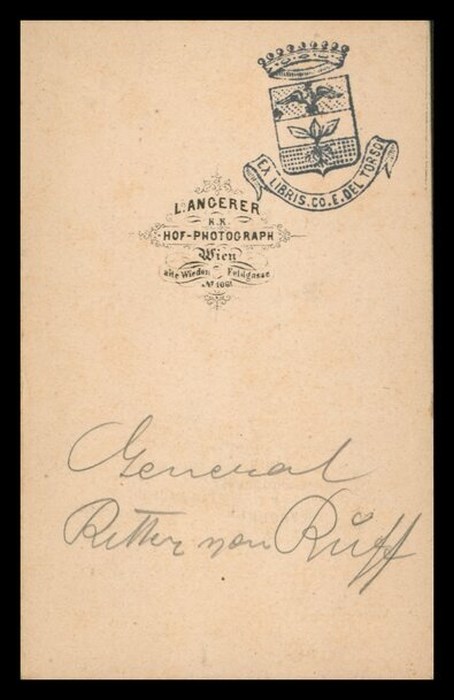 EX LIBRIS. CO. E. DEL TORSO
L. ANGERER
K.K.
HOF-PHOTOGRAPH
Wien
alte Wieden Feldgasse
No 1061
General
Ritter von Rŭff